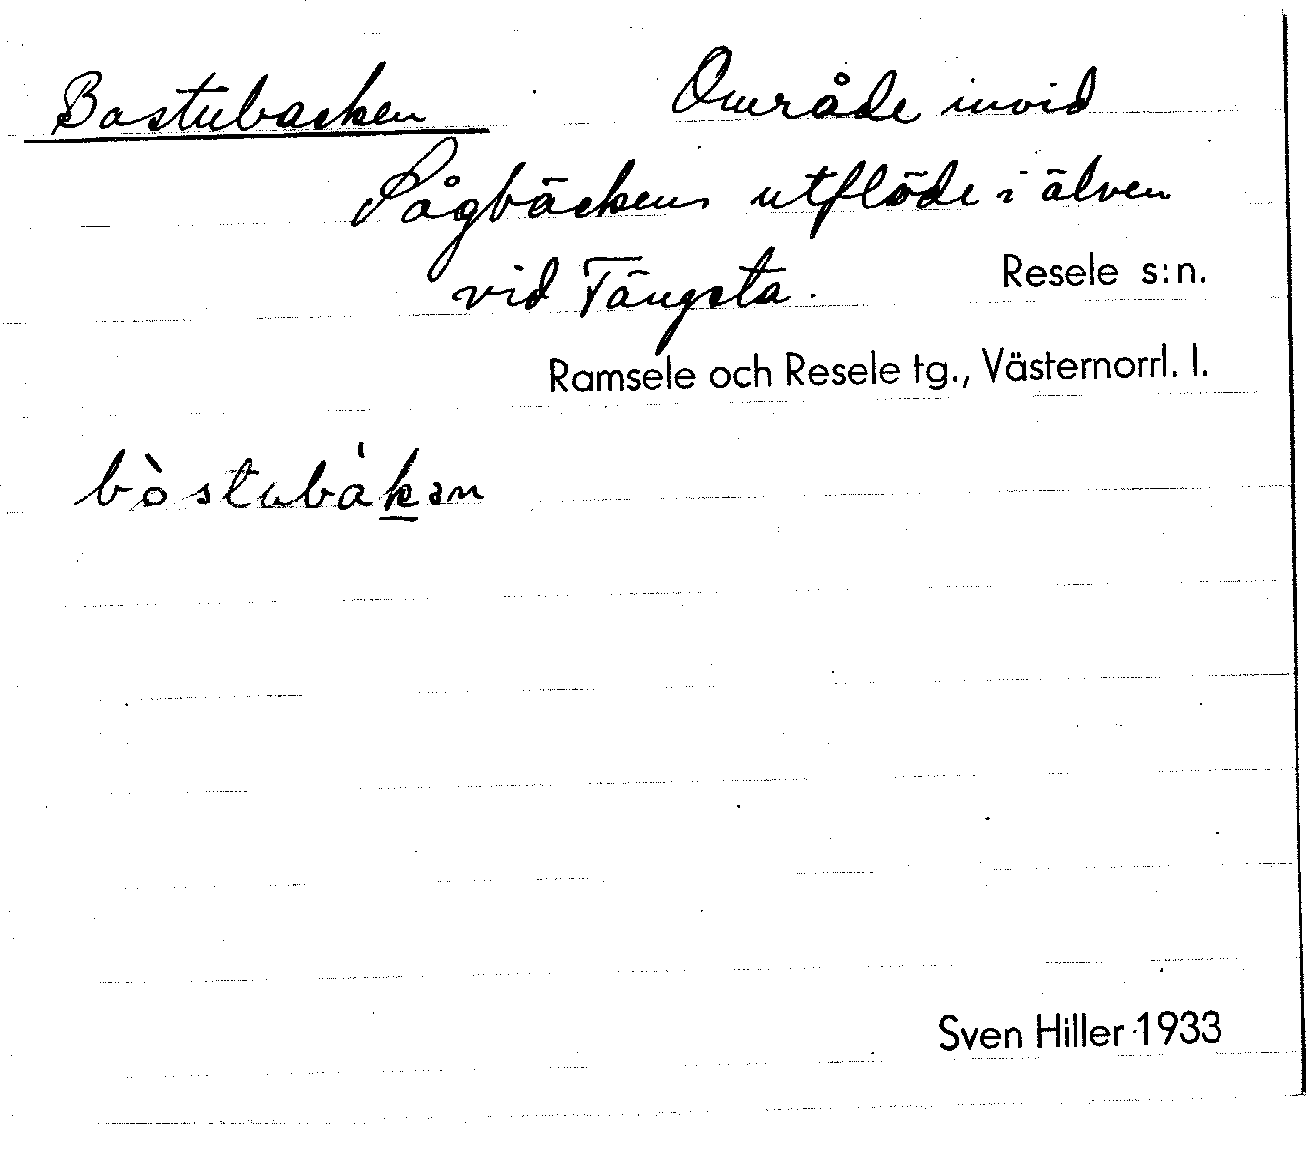 Bastubacken Område invid
Sågbäckens utflöde i älven
vid Tängsta. Resele s:n.
Ramsele och Resele tg., Västernorrl. l.
bòstubàk̲ən
Sven Hiller 1933